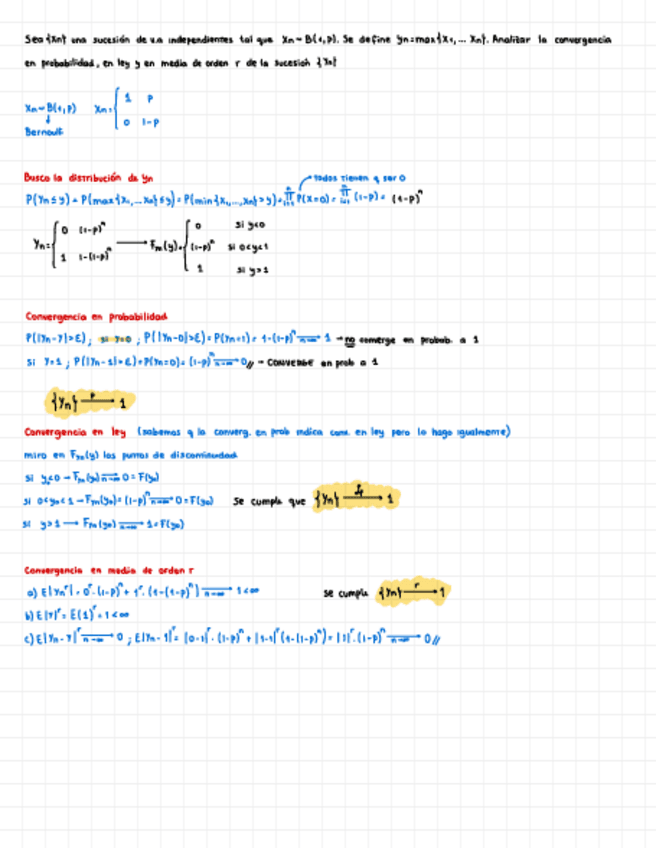 Sea {Xn} una sucesión de v.a independientes tal que Xn~B(1,p). Se define Yn=max{X1,... Xn}. Analizar la convergencia
en probabilidad, en ley y en media de orden r de la sucesión {Yn}
Xn~B(1,p) Xn= { 1 p
0 1-p
Bernoulli
Busco la distribución de Yn
todos tienen q ser 0
P(Yn≤y) = P(max{X1,...Xn}≤y) = P(min{X1,...,Xn}>y) = ∏ P(X=0) = ∏ (1-p) = (1-p)^n
Yn= { 0 (1-p)^n ⟶ Fn(y)= { 0 si y<0
1 1-(1-p)^n (1-p)^n si 0<y<1
1 si y>1
Convergencia en probabilidad
P(|Yn-Y|>ε) ; si Y=0 ; P(|Yn-0|>ε) = P(Yn=1) = 1-(1-p)^n n→∞ 1 → no converge en probab. a 1
si Y=1 ; P(|Yn-1|>ε) = P(Yn=0) = (1-p)^n n→∞ 0// → CONVERGE en prob a 1
{Yn} p→ 1
Convergencia en ley (sabemos q la converg. en prob indica conv. en ley pero lo hago igualmente)
miro en Fyn(y) los puntos de discontinuidad
si y<0 → Fyn(y0) n→∞ 0 = F(y0)
si 0<y0<1 → Fyn(y0) = (1-p)^n n→∞ 0 = F(y0) se cumple que {Yn} → 1
si y>1 ⟶ Fyn(y0) n→∞ 1 = F(y0)
Convergencia en media de orden r
a) E|Yn^r| = 0^r·(1-p)^n + 1^r·(1-(1-p)^n) n→∞ 1<∞ se cumple {Yn} r→ 1
b) E|Y|^r = E(1)^r = 1<∞
c) E|Yn-Y|^r n→∞ 0 ; E|Yn-1|^r = |0-1|^r·(1-p)^n + |1-1|^r(1-(1-p)^n) = |1|^r·(1-p)^n n→∞ 0//